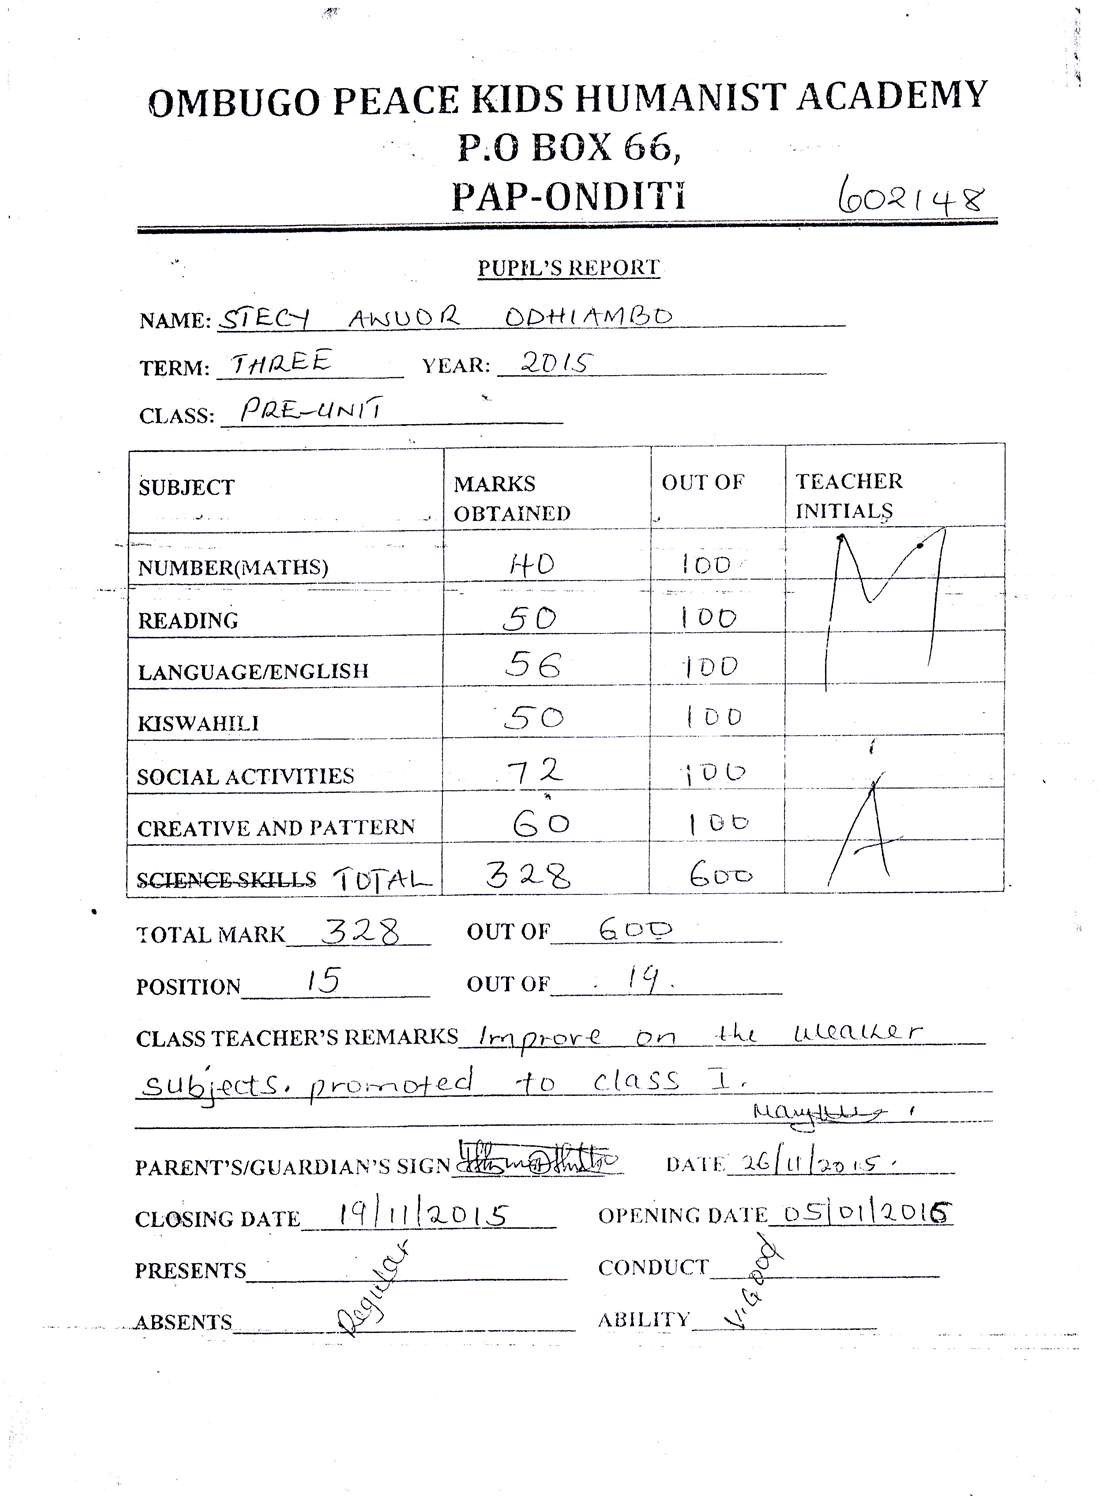 OMBUGO PEACE KIDS HUMANIST ACADEMY
P.O BOX 66,
PAP-ONDITI 602148
PUPIL'S REPORT
NAME: STECY AWUOR ODHIAMBO
TERM: THREE YEAR: 2015
CLASS: PRE-UNIT
SUBJECT MARKS OBTAINED OUT OF TEACHER INITIALS
NUMBER(MATHS) 40 100 M
READING 50 100
LANGUAGE/ENGLISH 56 100
KISWAHILI 50 100
SOCIAL ACTIVITIES 72 100
CREATIVE AND PATTERN 60 100 A
SCIENCE SKILLS TOTAL 328 600
TOTAL MARK 328 OUT OF 600
POSITION 15 OUT OF 19.
CLASS TEACHER'S REMARKS Improve on the weaker
subjects. promoted to class I.
PARENT'S/GUARDIAN'S SIGN DATE 26/11/2015.
CLOSING DATE 19/11/2015 OPENING DATE 05/01/2016
PRESENTS Regular CONDUCT V.Good
ABSENTS ABILITY